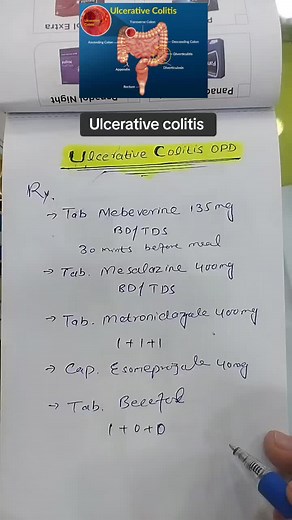 Ulcerative Colitis
Transverse Colon
Ascending Colon
Descending Colon
Appendix
Rectum
Panadol Extra
Panadol Night
Ulcerative colitis
Ulcerative Colitis OPD
Rx.
→ Tab Mebeverine 135mg
BD/TDS
30 mints before meal
→ Tab. Mesalazine 400mg
BD/TDS
→ Tab. Metronidazole 400mg
1+1+1
→ Cap. Esomeprazole 40mg
→ Tab.
1+0+0